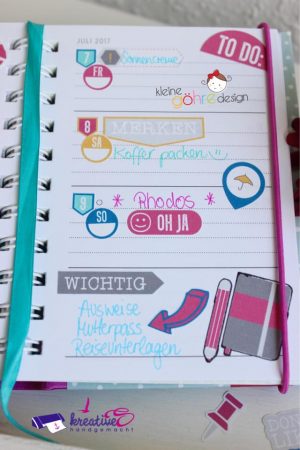 JULI 2017
TO DO:
7
FR
Sonnencreme
kleine
göhre design
8
SA
MERKEN
Koffer packen
9
SO
* Rhodos *
OH JA
WICHTIG
Ausweise
Mutterpass
Reiseunterlagen
kreative
handgemacht